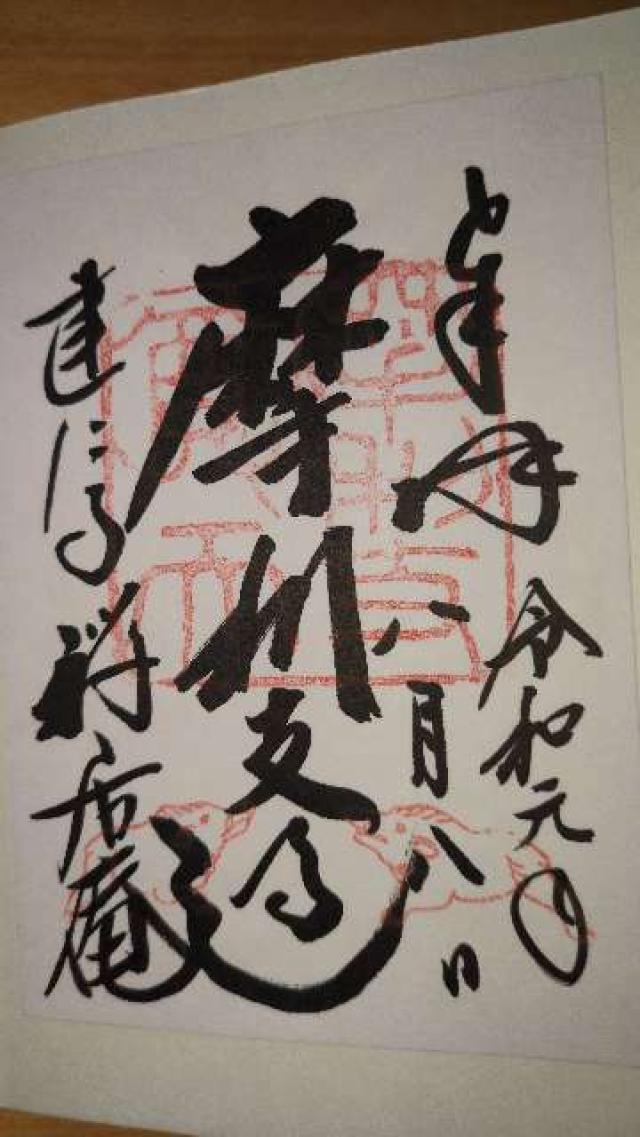 奉拝
令和元年
八月八日
摩利支
建仁寺 禅居庵